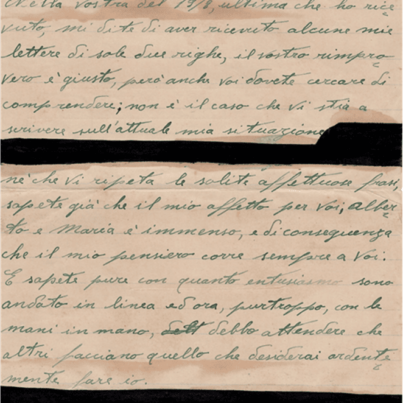 Nella vostra del 19/8, ultima che ho rice=
vuto, mi dite di aver ricevuto alcune mie
lettere di sole due righe, il vostro rimpro=
vero è giusto, però anche voi dovete cercare di
comprendere; non è il caso che vi stia a
scrivere sull'attuale mia situazione
nè che vi ripeta le solite affettuose frasi,
sapete già che il mio affetto per voi, Alber=
to e Maria è immenso, e di conseguenza
che il mio pensiero corre sempre a voi.
E sapete pure con quanto entusiasmo sono
andato in linea ed ora, purtroppo, con le
mani in mano, debbo attendere che
altri facciano quello che desiderai ardente=
mente fare io.